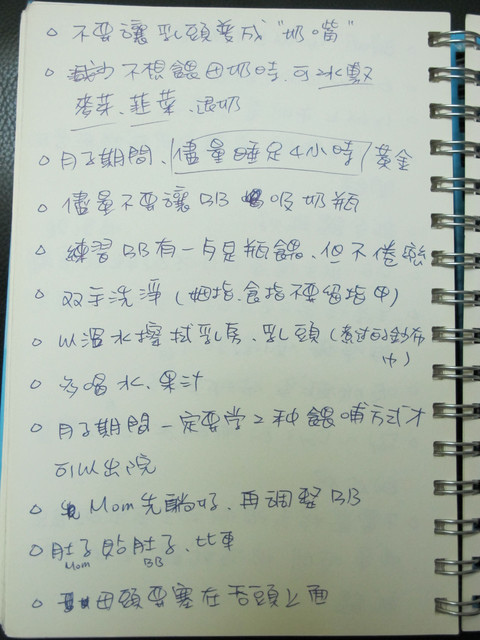 ○ 不要讓乳頭變成“奶嘴”
○ 不想餵母奶時、可冰敷
麥茶、韭菜、退奶
○ 月子期間、儘量睡足4小時/黃金
○ 儘量不要讓BB 吸奶瓶
○ 練習BB有一點是瓶餵、但不倦戀
○ 双手洗淨(姆指、食指不要留指甲)
○ 以溫水擦拭乳房、乳頭(煮过的紗布
巾)
○ 多喝水、果汁
○ 月子期間一定要学2种餵哺方式才
可以出院
○ Mom先躺好、再調整BB
○ 肚子貼肚子、
Mom BB
○ 頭要塞在舌頭上面